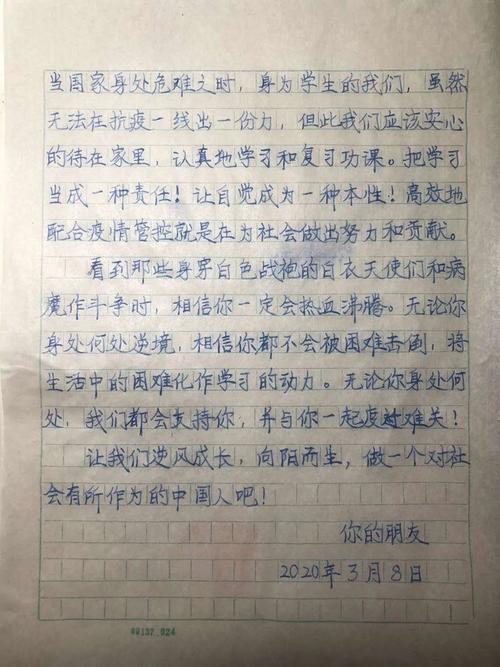 当国家身处危难之时，身为学生的我们，虽然
无法在抗疫一线出一份力，但此我们应该安心
的待在家里，认真地学习和复习功课。把学习
当成一种责任！让自觉成为一种本性！高效地
配合疫情管控就是在为社会做出努力和贡献。
看到那些身穿白色战袍的白衣天使们和病
魔作斗争时，相信你一定会热血沸腾。无论你
身处何处逆境，相信你都不会被困难击倒，将
生活中的困难化作学习的动力。无论你身处何
处，我们都会支持你，并与你一起度过难关！
让我们逆风成长，向阳而生，做一个对社
会有所作为的中国人吧！
你的朋友
2020年3月8日
49137.024